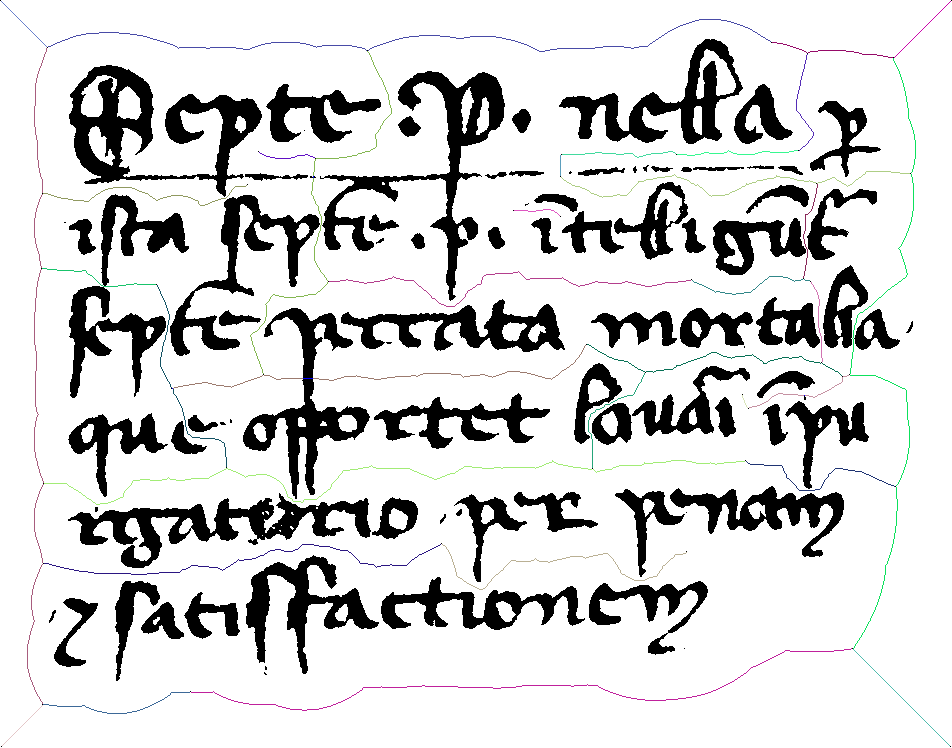 Septe .P. nella ꝑ
ista septē .p. ītelligūt̄
septē peccata mortalia.
que opportet lauari ī pu
rigatorio per penam
⁊ satisfactionem